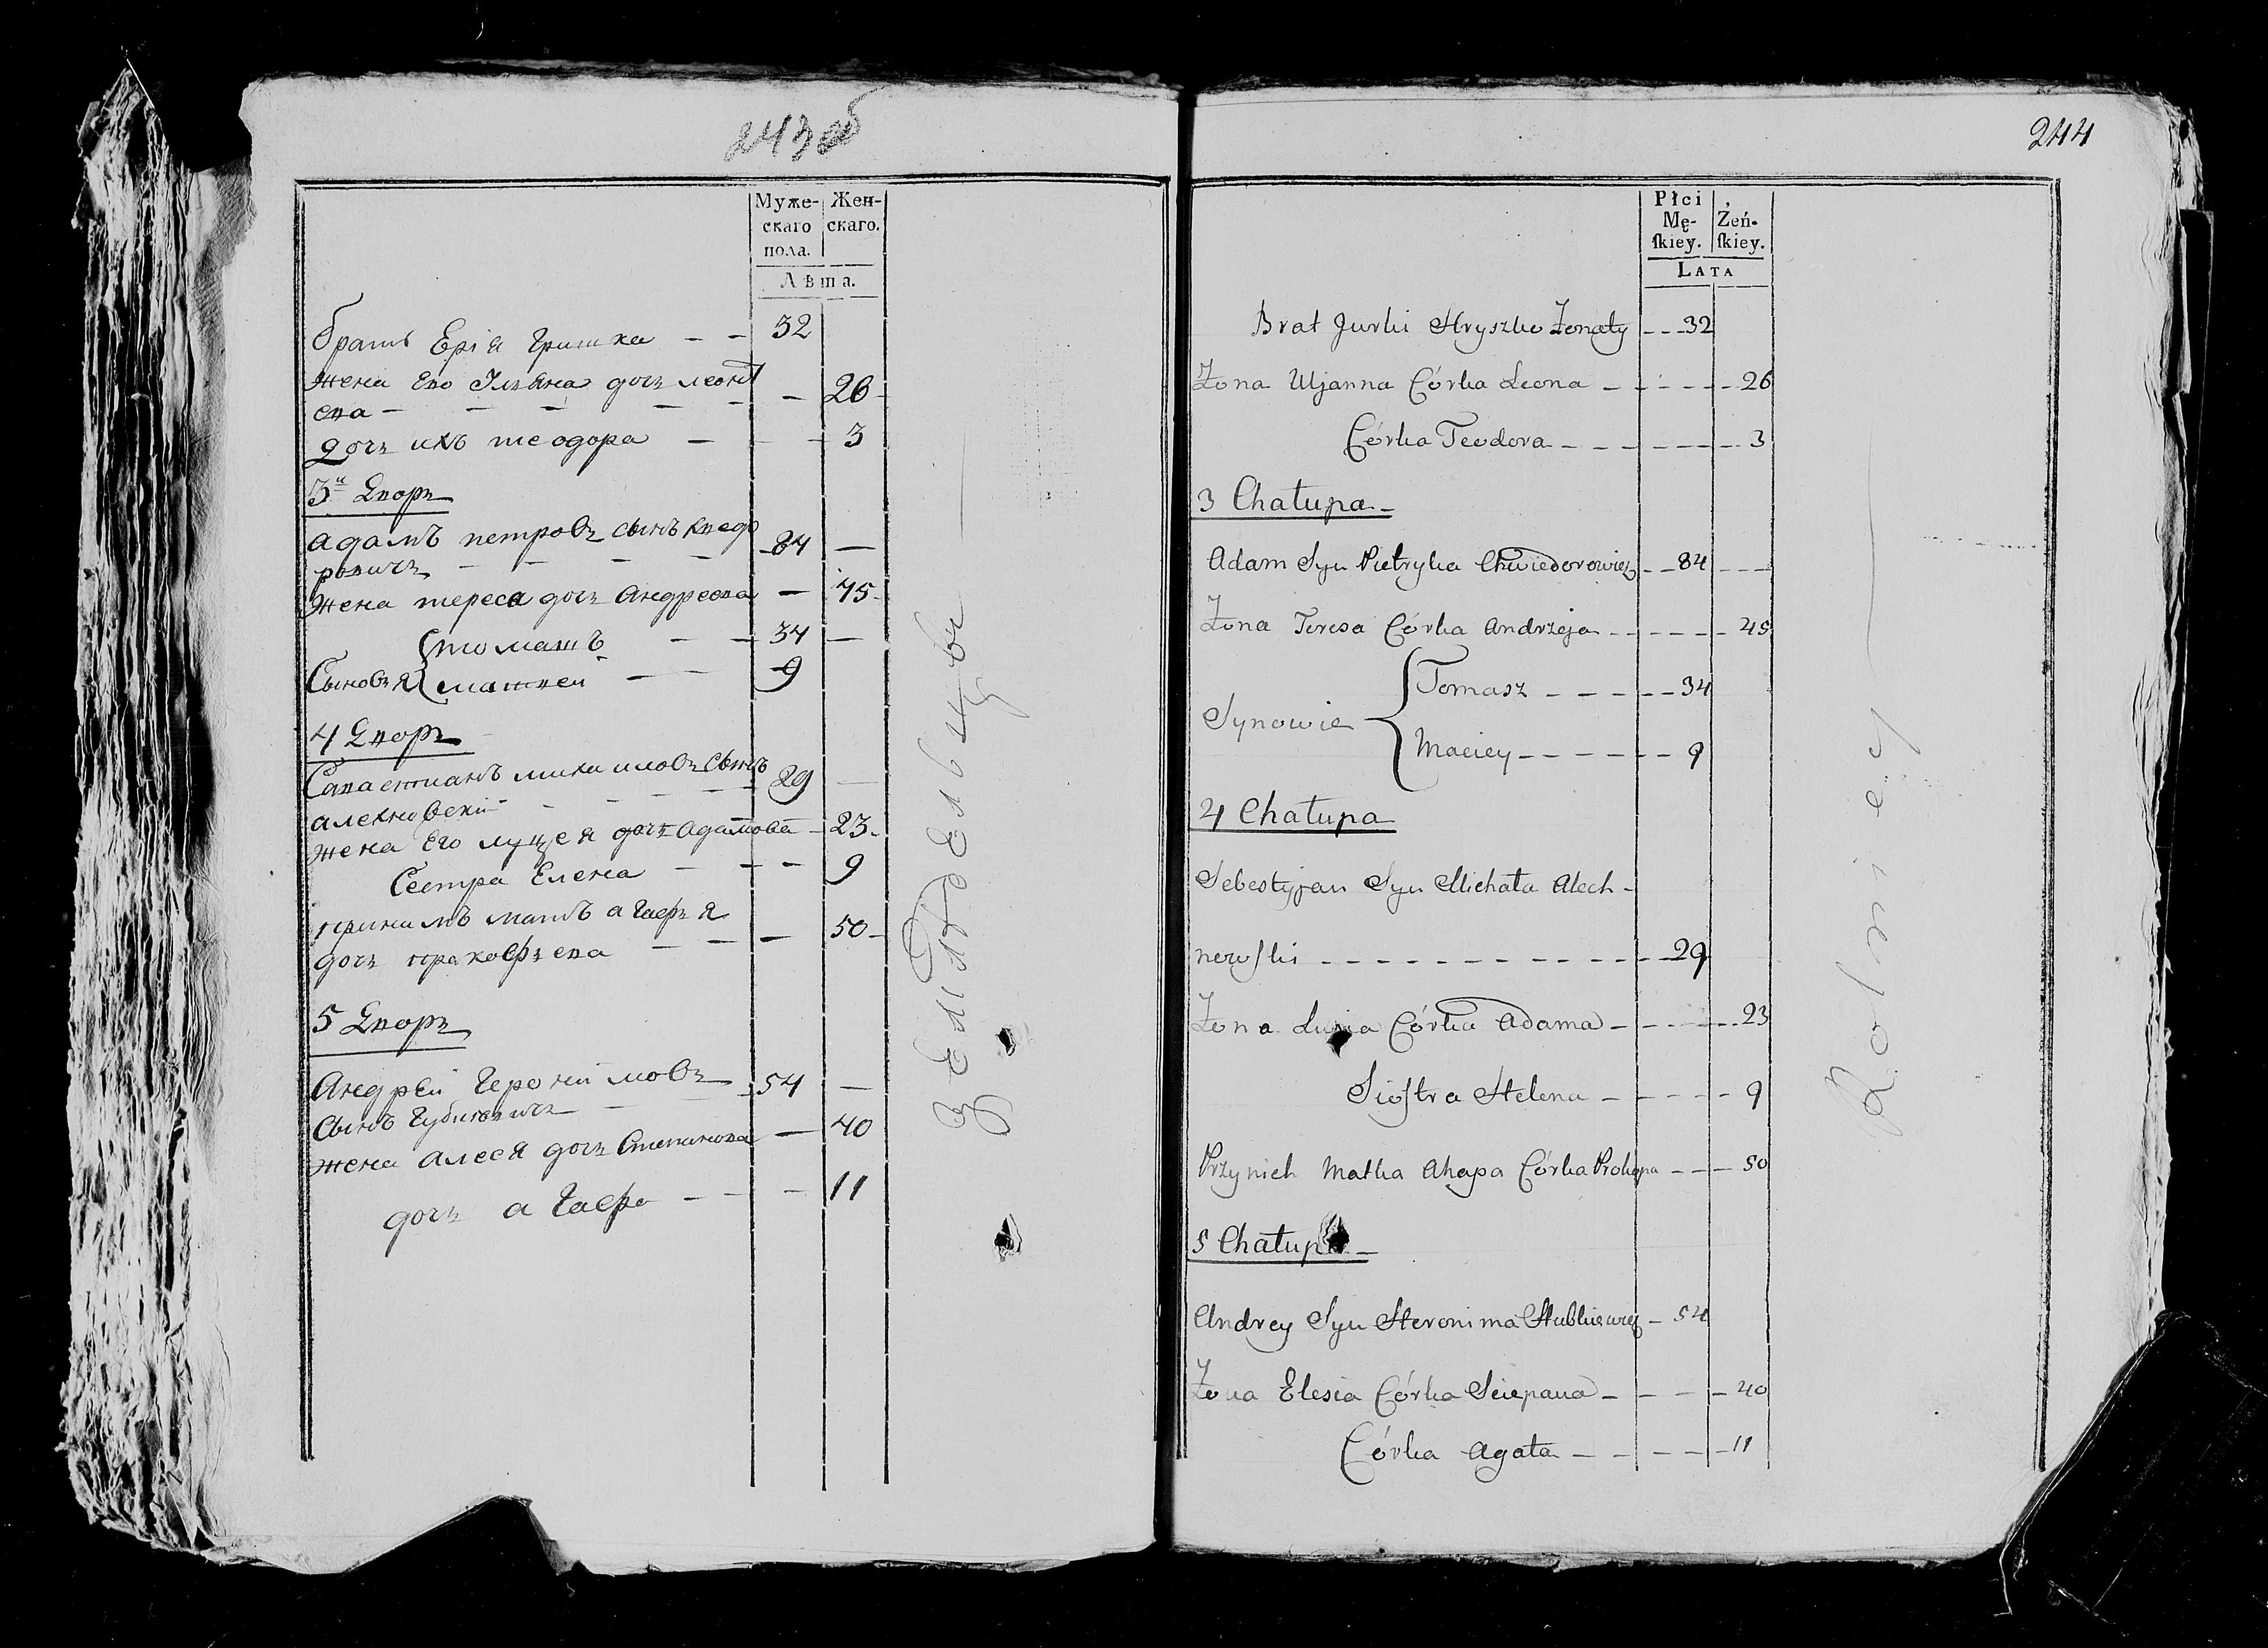 243 об
Муже-
скаго
пола.
Жен-
скаго.
Лѣта.
братъ Ерія Гришка - - 32
жена Его Ульяна дочь леонт
ева - - - - - - 26
дочь ихъ теодора - - - 3
3й Дворъ
адамъ петровъ сынъ Хведо
ровичъ - - - - 84 -
жена тереса дочь Андреева - 45
томашъ - - 34 -
Сыновья матвей - - 9
4 Дворъ
Савастианъ михаиловъ сынъ
алехновский - - - - 29 -
жена Его луцея дочь Адамова - 23
Сестра Елена - - - 9
приимъ мать агафья
дочь пракофьева - - - 50
5 Дворъ
Андрей Геронимовъ 54 -
Сынъ Губкевичъ
жена алеся дочь Степанова - 40
дочь агафа - - - 11
Земледельцы
244
Płci
Mę-
ſkiey.
Żeń-
ſkiey.
LATA
Brat Jurki Hryszko Żonaty - - 32
Żona Uljanna Córka Leona - - - - - 26
Córka Teodora - - - - - - - 3
3 Chałupa
Adam Syn Pietryka Chwiedorowicz - - 84 - - -
Żona Teresa Córka Andrzeja - - - - - 45
Tomasz - - - - - 34
Synowie
Maciey - - - - - - 9
4 Chałupa
Sebestyjan Syn Michała Alech-
nowſki - - - - - - - - - - - 29
Żona Lucia Córka Adama - - - - - 23
Sioſtra Helena - - - - - 9
Przyięch Matka Ahapa Córka Prokopa - - - 50
5 Chałupa
Andrey Syn Heronima Hubkiewicz - 54
Żona Elesia Córka Sciepana - - - - 40
Córka Agata - - - - - 11
Rolniey